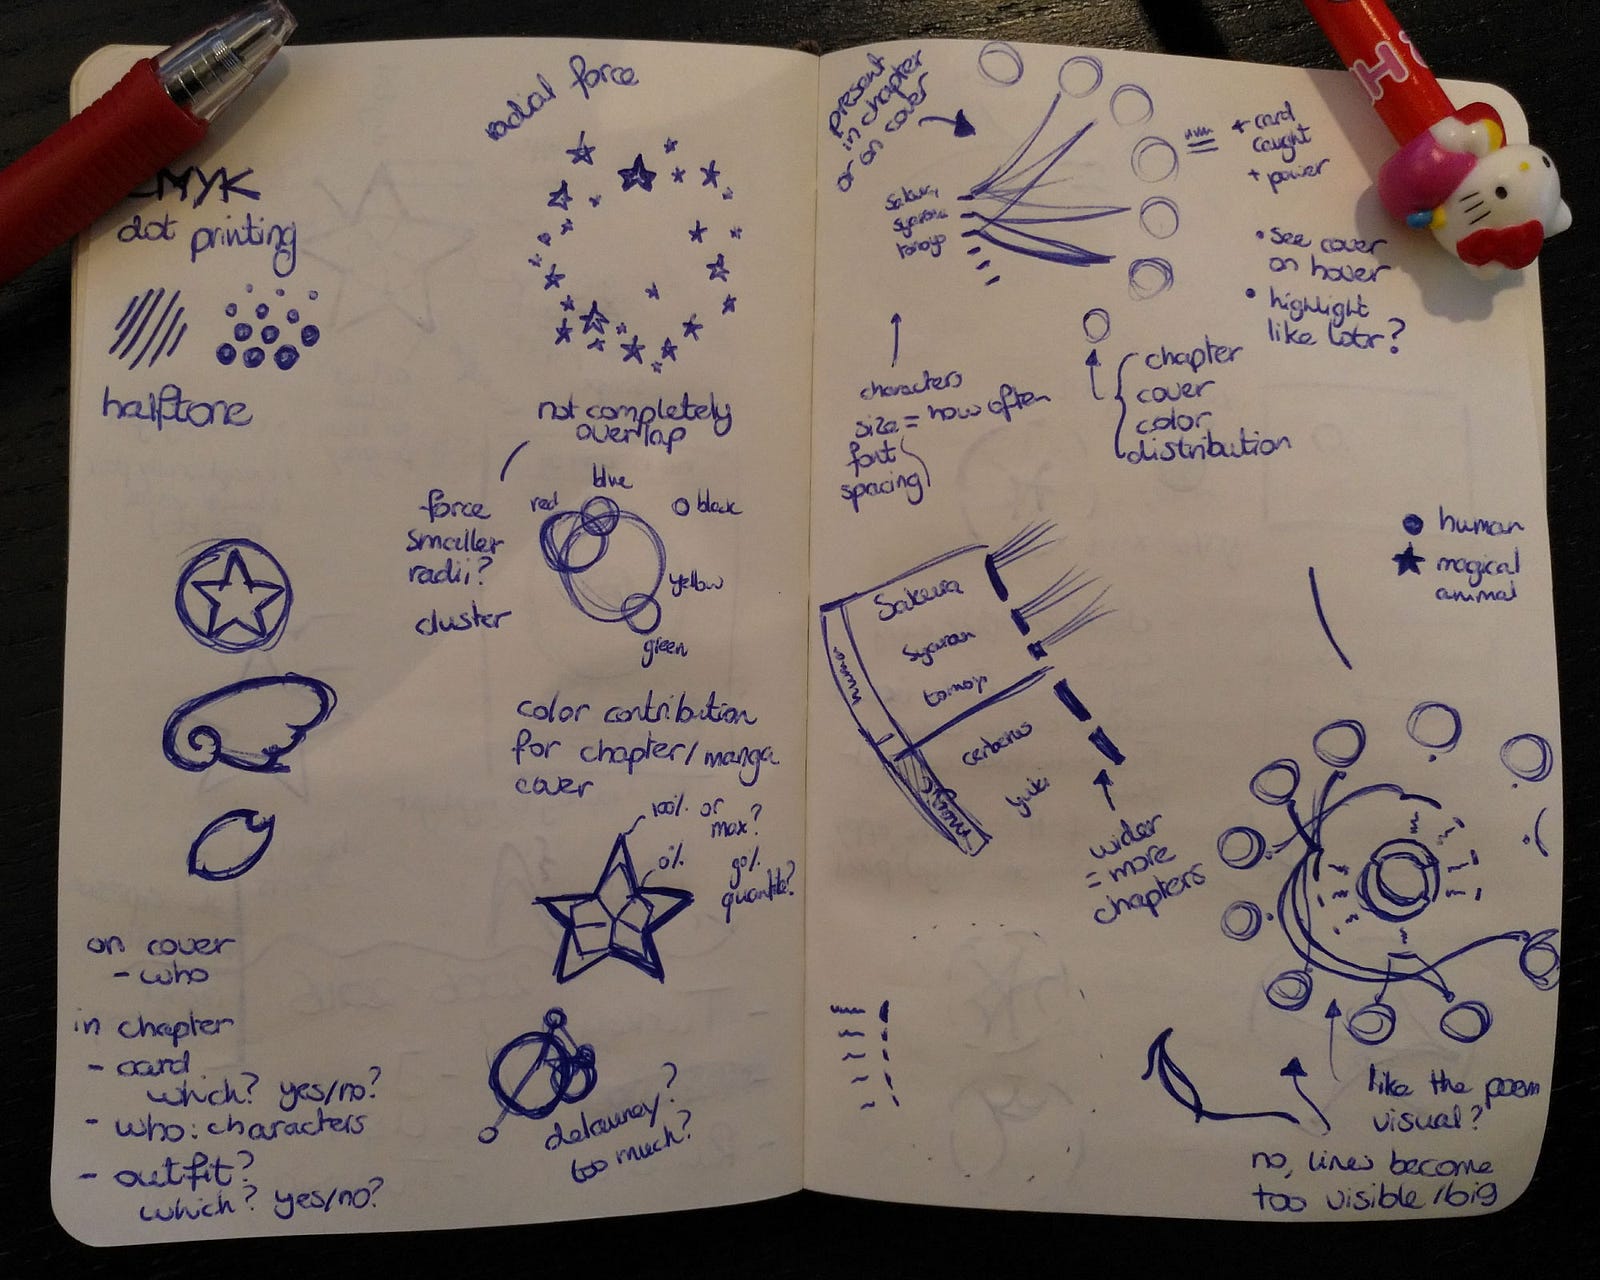 CMYK
dot printing
halftone
on cover
- who
in chapter
- card
which? yes/no?
- who: characters
- outfit?
which? yes/no?
radial force
not completely
overlap
force
smaller
radii?
cluster
red
blue
black
yellow
green
color contribution
for chapter/manga
cover
100% or
max?
0%
90%
quantile?
delauney?
too much?
present
in chapter
or on cover
Sakura
Syaoran
tomoyo
+ card
caught
+ power
• see cover
on hover
• highlight
like lotr?
characters
size = how often
font
spacing
chapter
cover
color
distribution
• human
★ magical
animal
Sakura
Syaoran
tomoyo
cerberus
Yuki
human
magic
wider
= more
chapters
like the poem
visual?
no, lines become
too visible/big
H